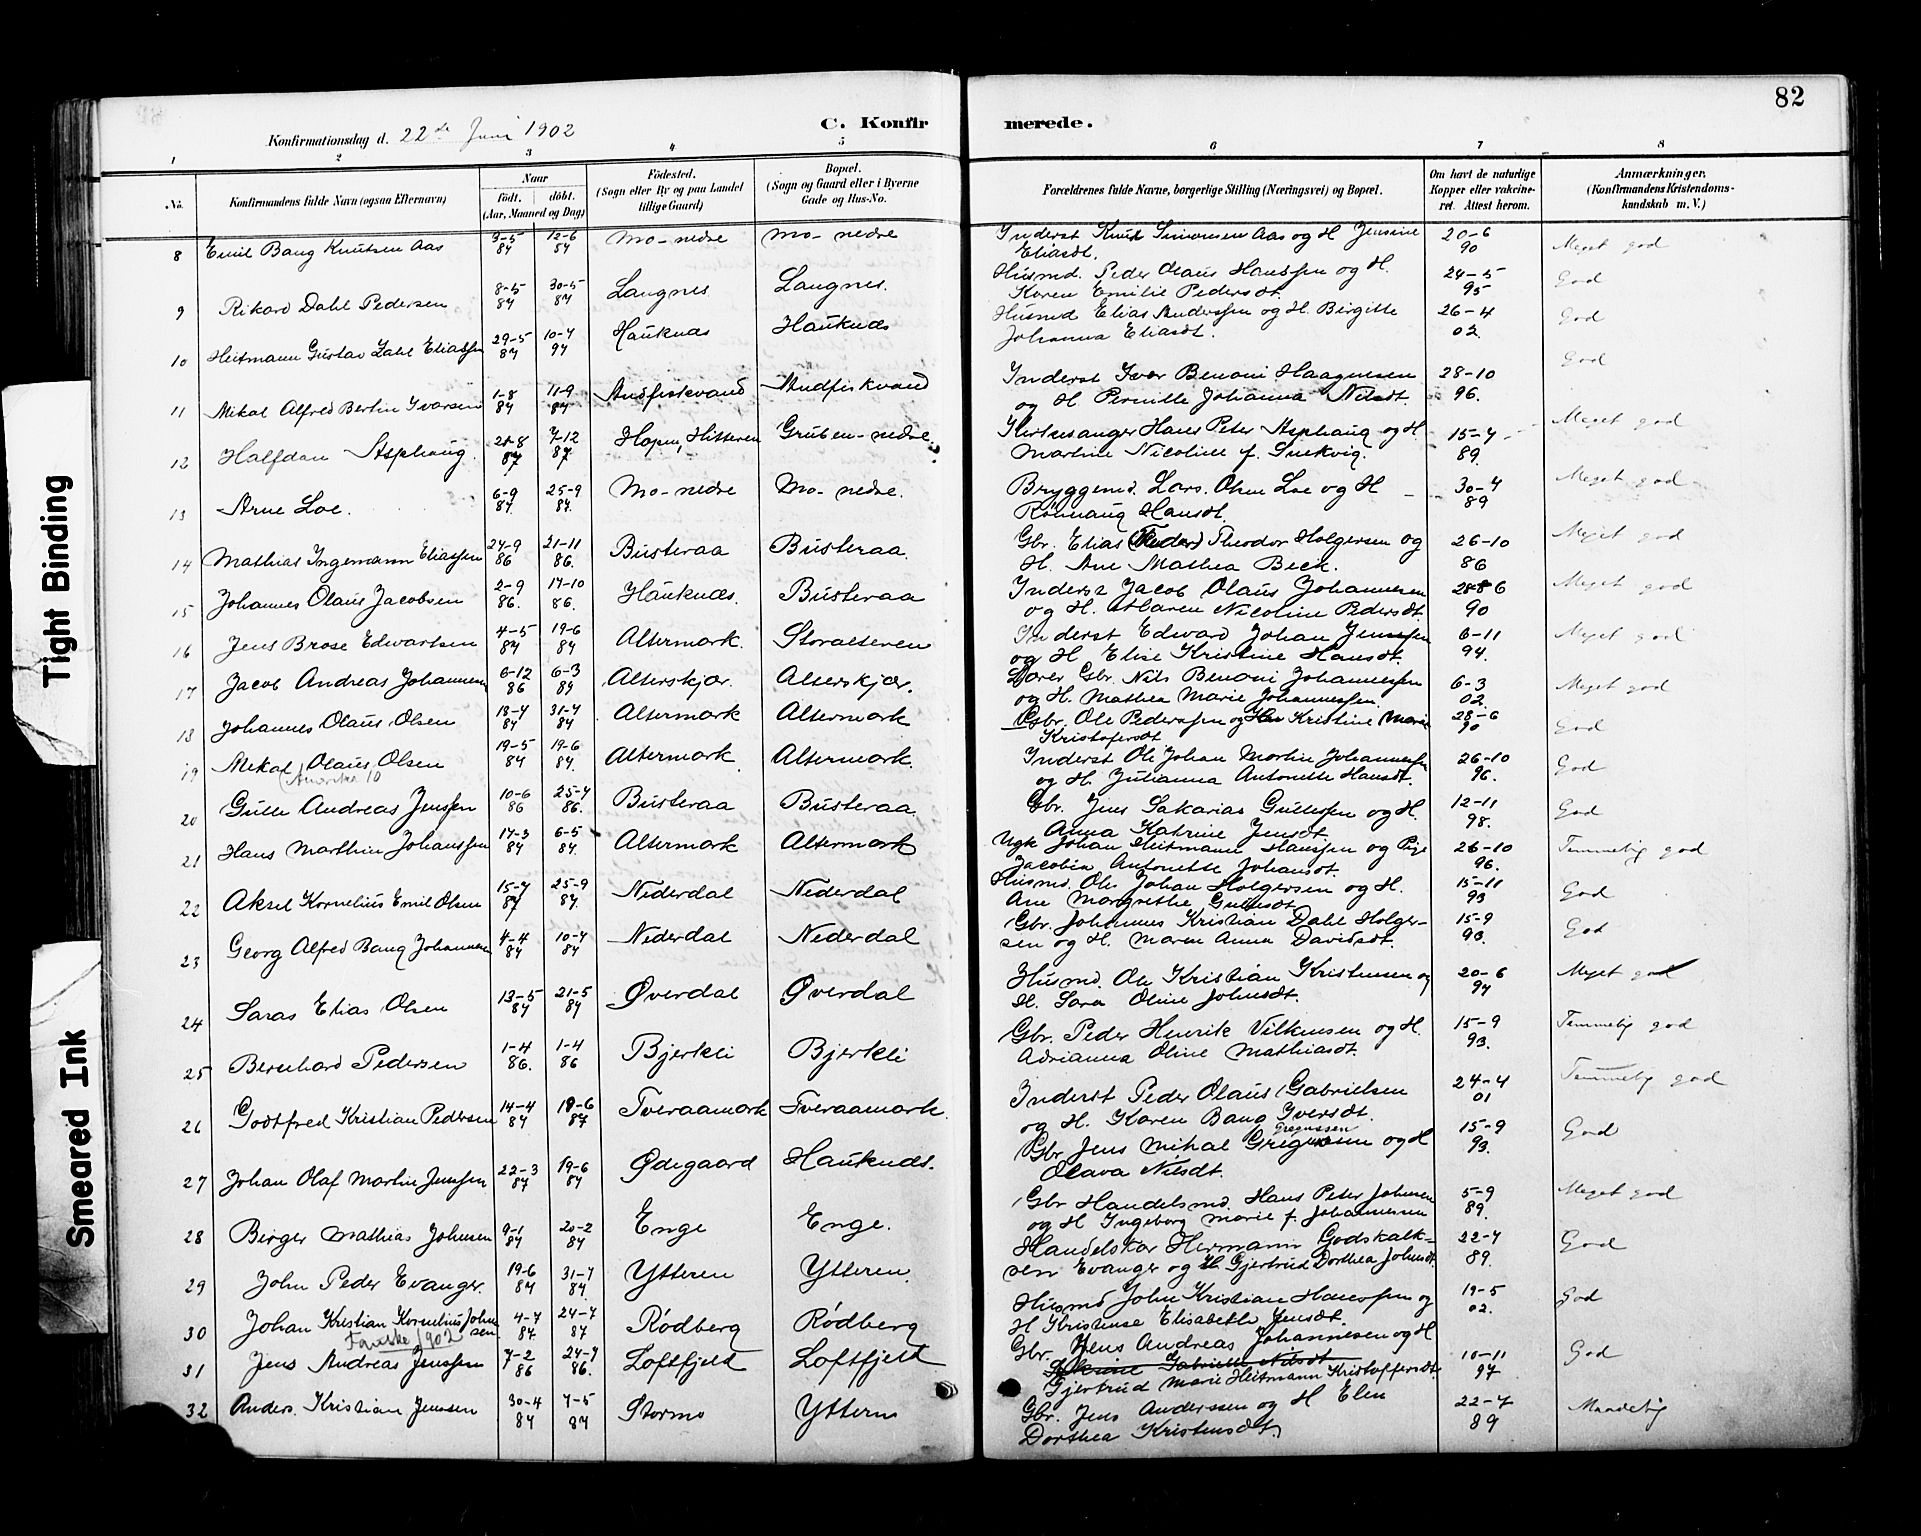 82
Konfirmationsdag d. 22de Juni 1902
C. Konfirmerede.
1 2 3 4 5 6 7 8
No.
Konfirmandens fulde Navn (ogsaa Efternavn)
Naar
født. døbt.
(Aar, Maaned og Dag)
Fødested.
(Sogn eller By og paa Landet
tillige Gaard)
Bopæl.
(Sogn og Gaard eller i Byerne
Gade og Hus-No.
Forældrenes fulde Navne, borgerlige Stilling (Næringsvei) og Bopæl.
Om havt de naturlige
Kopper eller vakcine-
ret. Attest herom.
Anmærkninger.
(Konfirmandens Kristendoms-
kundskab m. V.)
8 Emil Bang Knutsen Aas 3-5 84 12-6 84 Mo-nedre Mo-nedre Inderst Knut Simonsen Aas og H Jensine 20-6 90 Meget god
Eliasdt.
9 Rikard Dahl Pedersen 8-5 87 30-5 87 Langnes Langnes. Husmd. Peder Olaus Hanssen og H. 24-5 95 God
Karen Emilie Pedersdt.
10 Heitmann Gustav Dahl Eliassen 29-5 87 10-7 97 Hauknes Hauknes Husmd Elias Anderssen og H. Birgitte 26-4 02. God
Johanna Eliasdt.
11 Mikal Alfred Bertin Ivarsen 1-8 87 11-9 87 Andfiskvand Andfiskvand Inderst Ivar Benoni Haagensen 28-10 96. God
og H Pernille Johanna Nilsdt.
12 Halfdan Asphaug. 21-8 87 7-12 87 Hopen, Hitteren Gruben-nedre. Kirkesanger Hans Peter Asphaug og H 15-7 89. Meget god
Martine Nicoline f. Snekvig.
13 Arne Loe. 6-9 87 25-9 87. Mo-nedre Mo-nedre. Bryggemd. Lars Olsen Loe og H 30-7 89 Meget god
Rønnaug Hansdt.
14 Mathias Ingemann Eliassen 24-9 86 21-11 86. Busteraa Busteraa. Gbr. Elias (Feder) Theodor Holgersen og 26-10 86 Meget god
H. Ane Mathea Beck.
15 Johannes Olaus Jacobsen 2-9 86. 17-10 86. Hauknes. Busteraa Inderst Jacob Olaus Johannesen 28-6 90 Meget god
og H. Maren Nicoline Pedersdt.
16 Jens Brose Edvartsen 4-5 87 19-6 87 Altermark. Storalteren Inderst Edvard Johan Jenssen 6-11 94. Meget god
og H Elise Kristine Hansdt.
17 Jacob Andreas Johannesen 6-12 86 6-3 87 Alterskjær. Alterskjær. Gbr. Nils Benoni Johannessen 6-3 02. Meget god
og H. Mathea Marie Johannessen.
18 Johannes Olaus Olsen 18-7 87 31-7 87 Altermark Altermark Gbr. Ole Pederssen og Hu Kristine Marie 28-6 90 God
Kristofersdt
19 Mikal Olaus Olsen 19-5 87 19-6 87. Altermark Altermark. Inderst Ole Johan Martin Johannessen 26-10 96. God
(Amerika 10
og H. Julianna Antonette Hansdt.
20 Gulle Andreas Jenssen 10-6 86 25-7 86. Busteraa Busteraa. Gbr. Jens Sakarias Gullessen og H. 12-11 98. God
Anna Katrine Jensdt.
21 Hans Marthin Johanssen 17-3 87 6-5 87. Altermark Altermark Ugk Johan Heitmann Hanssen og Pige 26-10 96. Temmelig god
Jacobia Antonette Johansdt.
22 Aksel Kornelius Emil Olsen 15-7 87 25-9 87. Nederdal Nederdal Husmd. Ole Johan Holgersen og H. 15-11 93 God
Ane Margrethe Gullesdt.
23 Georg Alfred Bang Johannesen 4-4 87 10-7 87 Nederdal Nederdal Gbr. Johannes Kristian Dahl Holger- 15-9 93. God
sen og H. Maren Anna Davidsdt.
24 Saras Elias Olsen 13-5 87 21-5 87 Øverdal Øverdal Husmd. Ole Kristian Kristensen og 20-6 97 Meget god
H. Sara Oline Johnsdt.
25 Bernhard Pedersen 1-4 86. 1-4 86 Bjerkli Bjerkli Gbr. Peder Henrik Vilkensen og H. 15-9 93. Temmelig god
Adrianna Oline Mathiasdt.
26 Godtfred Kristian Pedersen 14-4 87 19-6 87 Tveraamark Tveraamark. Inderst Peder Olaus Gabrielsen 24-4 01 Temmelig god
og H. Karen Bang Iversdt.
27 Johan Olaf Martin Jenssen. 22-3 87 19-6 87 Ødegaard Hauknes. Gbr Jens Mikal Gregusen og H 15-9 93. God
Gregussen
Olava Nilsdt.
28 Birger Mathias Johnsen 9-1 87 20-2 87 Enge Enge. Gbr Handelsmd. Hans Peter Johnsen 5-9 89. Meget god
og H Ingeborg Marie f. Johannesen
29 John Peder Evanger. 19-6 87 31-7 87. Ytteren Ytteren. Handelskar Hermann Godskalk- 22-7 89. God
sen Evanger og H. Gjertrud Dorthea Johnsdt.
30 Johan Kristian Kornelius John 4-7 87. 24-7 87 Rødberg Rødberg Husmd John Kristian Hanssen og 19-5 02. God
sen.
Fauske 1902
H Kristense Elisabeth Jensdt.
31 Jens Andreas Jenssen 7-2 86 24-7 86. Loftfjeld Loftfjeld Gbr. Jens Andreas Johannesen og H 10-11 97 God
Gabrielle Nilsdt
Gjertrud Marie Heitmann Kristoffersdt.
32 Anders Kristian Jenssen 30-4 87 7-5 87 Stormo Ytteren Gbr. Jens Andersen og H Elen 22-7 89 Maadelig
Dorthea Kristensdt.
Tight Binding
Smeared Ink